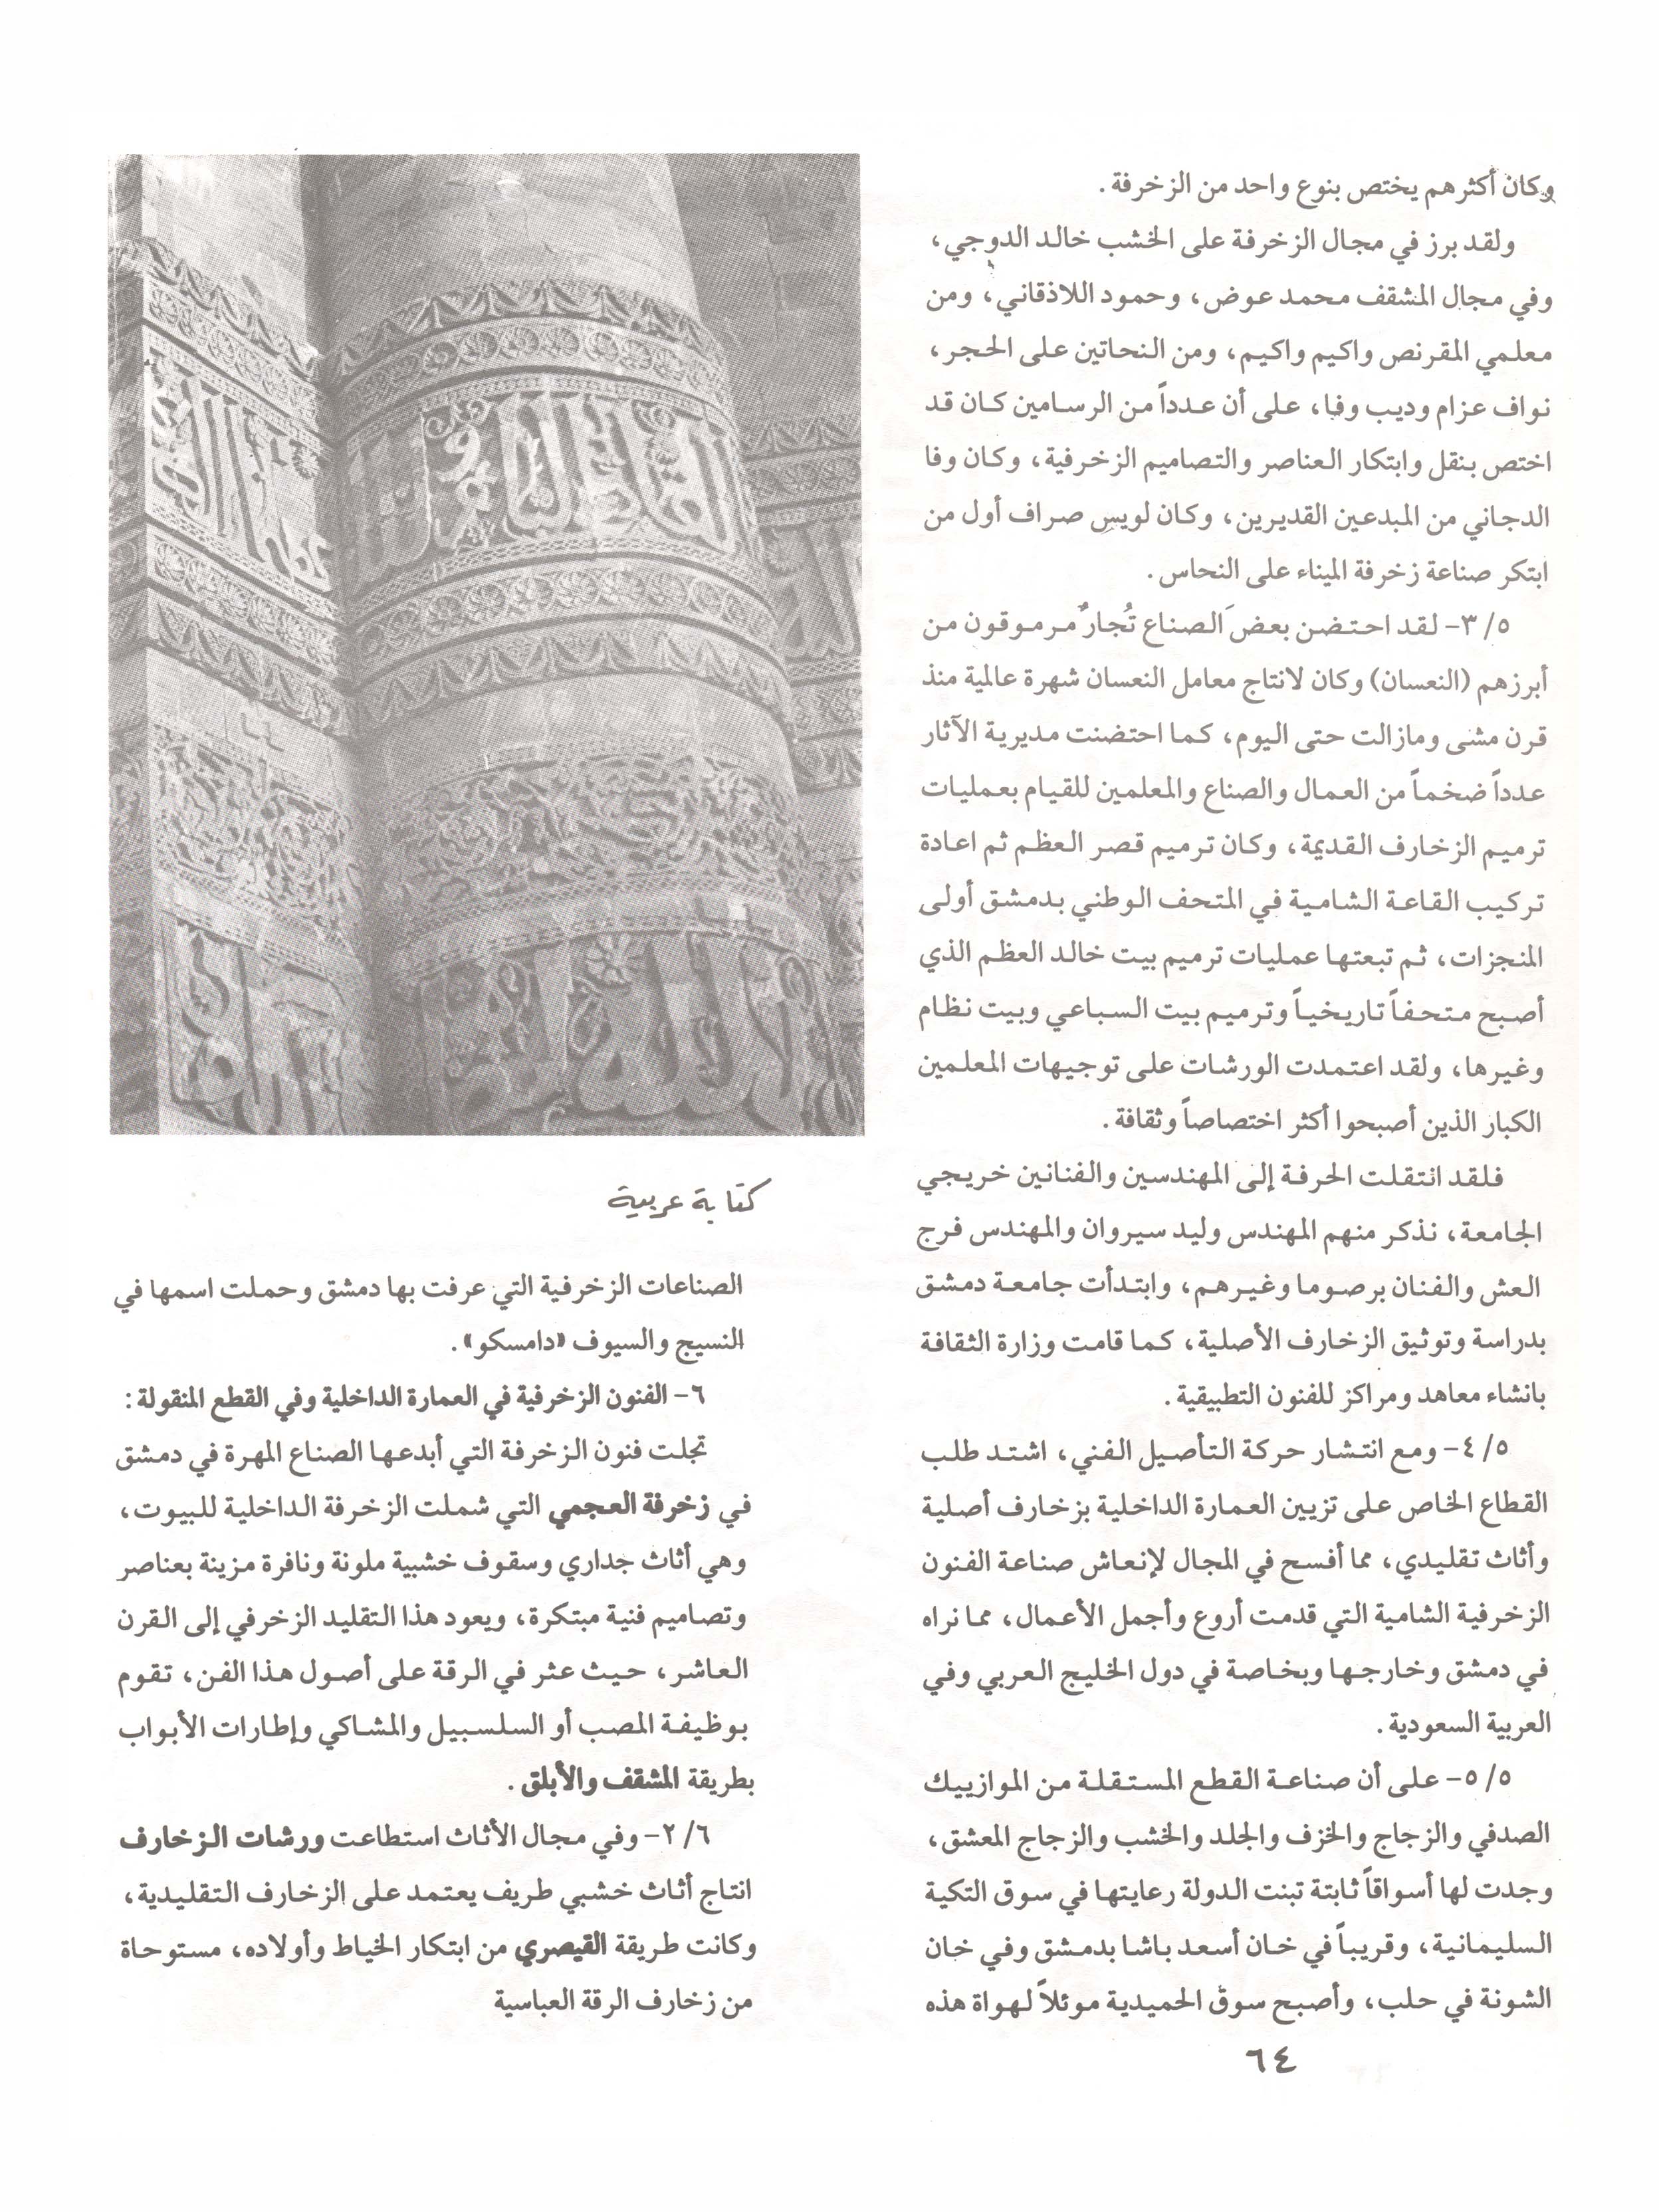 وكان أكثرهم يختص بنوع واحد من الزخرفة.
ولقد برز في مجال الزخرفة على الخشب خالد الدوجي،
وفي مجال المشقف محمد عوض، وحمود اللاذقاني، ومن
معلمي المقرنص واكيم واكيم، ومن النحاتين على الحجر،
نواف عزام وديب وفا، على أن عدداً من الرسامين كان قد
اختص بنقل وابتكار العناصر والتصاميم الزخرفية، وكان وفا
الدجاني من المبدعين القديرين، وكان لويس صراف أول من
ابتكر صناعة زخرفة الميناء على النحاس.
٣/٥- لقد احتضن بعضَ الصناع تُجارٌ مرموقون من
أبرزهم (النعسان) وكان لانتاج معامل النعسان شهرة عالمية منذ
قرن مشى ومازالت حتى اليوم، كما احتضنت مديرية الآثار
عدداً ضخماً من العمال والصناع والمعلمين للقيام بعمليات
ترميم الزخارف القديمة، وكان ترميم قصر العظم ثم اعادة
تركيب القاعة الشامية في المتحف الوطني بدمشق أولى
المنجزات، ثم تبعتها عمليات ترميم بيت خالد العظم الذي
أصبح متحفاً تاريخياً وترميم بيت السباعي وبيت نظام
وغيرها، ولقد اعتمدت الورشات على توجيهات المعلمين
الكبار الذين أصبحوا أكثر اختصاصاً وثقافة.
فلقد انتقلت الحرفة إلى المهندسين والفنانين خريجي
الجامعة، نذكر منهم المهندس وليد سيروان والمهندس فرج
العش والفنان برصوما وغيرهم، وابتدأت جامعة دمشق
بدراسة وتوثيق الزخارف الأصلية، كما قامت وزارة الثقافة
بانشاء معاهد ومراكز للفنون التطبيقية.
٤/٥- ومع انتشار حركة التأصيل الفني، اشتد طلب
القطاع الخاص على تزيين العمارة الداخلية بزخارف أصلية
وأثاث تقليدي، مما أفسح في المجال لإنعاش صناعة الفنون
الزخرفية الشامية التي قدمت أروع وأجمل الأعمال، مما نراه
في دمشق وخارجها وبخاصة في دول الخليج العربي وفي
العربية السعودية.
٥/٥- على أن صناعة القطع المستقلة من الموازييك
الصدفي والزجاج والخزف والجلد والخشب والزجاج المعشق،
وجدت لها أسواقاً ثابتة تبنت الدولة رعايتها في سوق التكية
السليمانية، وقريباً في خان أسعد باشا بدمشق وفي خان
الشونة في حلب، وأصبح سوق الحميدية موئلاً لهواة هذه
كتابة عربية
الصناعات الزخرفية التي عرفت بها دمشق وحملت اسمها في
النسيج والسيوف «دامسكو».
٦- الفنون الزخرفية في العمارة الداخلية وفي القطع المنقولة:
تجلت فنون الزخرفة التي أبدعها الصناع المهرة في دمشق
في زخرفة العجمي التي شملت الزخرفة الداخلية للبيوت،
وهي أثاث جداري وسقوف خشبية ملونة ونافرة مزينة بعناصر
وتصاميم فنية مبتكرة، ويعود هذا التقليد الزخرفي إلى القرن
العاشر، حيث عثر في الرقة على أصول هذا الفن، تقوم
بوظيفة المصب أو السلسبيل والمشاكي وإطارات الأبواب
بطريقة المشقف والأبلق.
٢/٦- وفي مجال الأثاث استطاعت ورشات الزخارف
انتاج أثاث خشبي طريف يعتمد على الزخارف التقليدية،
وكانت طريقة القيصري من ابتكار الخياط وأولاده، مستوحاة
من زخارف الرقة العباسية
٦٤